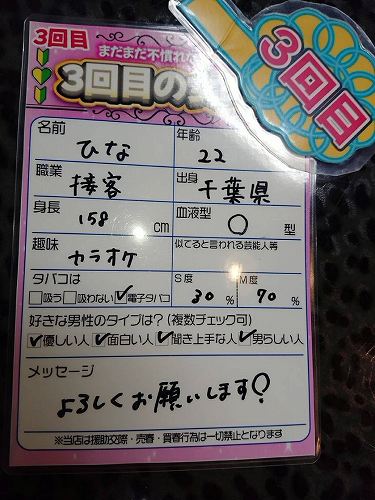 3回目
まだまだ不慣れな
3回目の
3回目
名前
ひな
年齢
22
職業
接客
出身
千葉県
身長
158 cm
血液型
○型
趣味
カラオケ
似てると言われる芸能人等
タバコは
□吸う □吸わない ☑電子タバコ
S度
30%
M度
70%
好きな男性のタイプは?(複数チェック可)
☑優しい人 ☑面白い人 ☑聞き上手な人 ☑男らしい人
メッセージ
よろしくお願いします!
※当店は援助交際・売春・買春行為は一切禁止となります